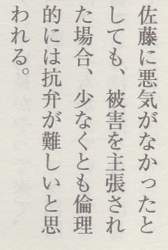 佐藤に悪気がなかったと
しても、被害を主張され
た場合、少なくとも倫理
的には抗弁が難しいと思
われる。